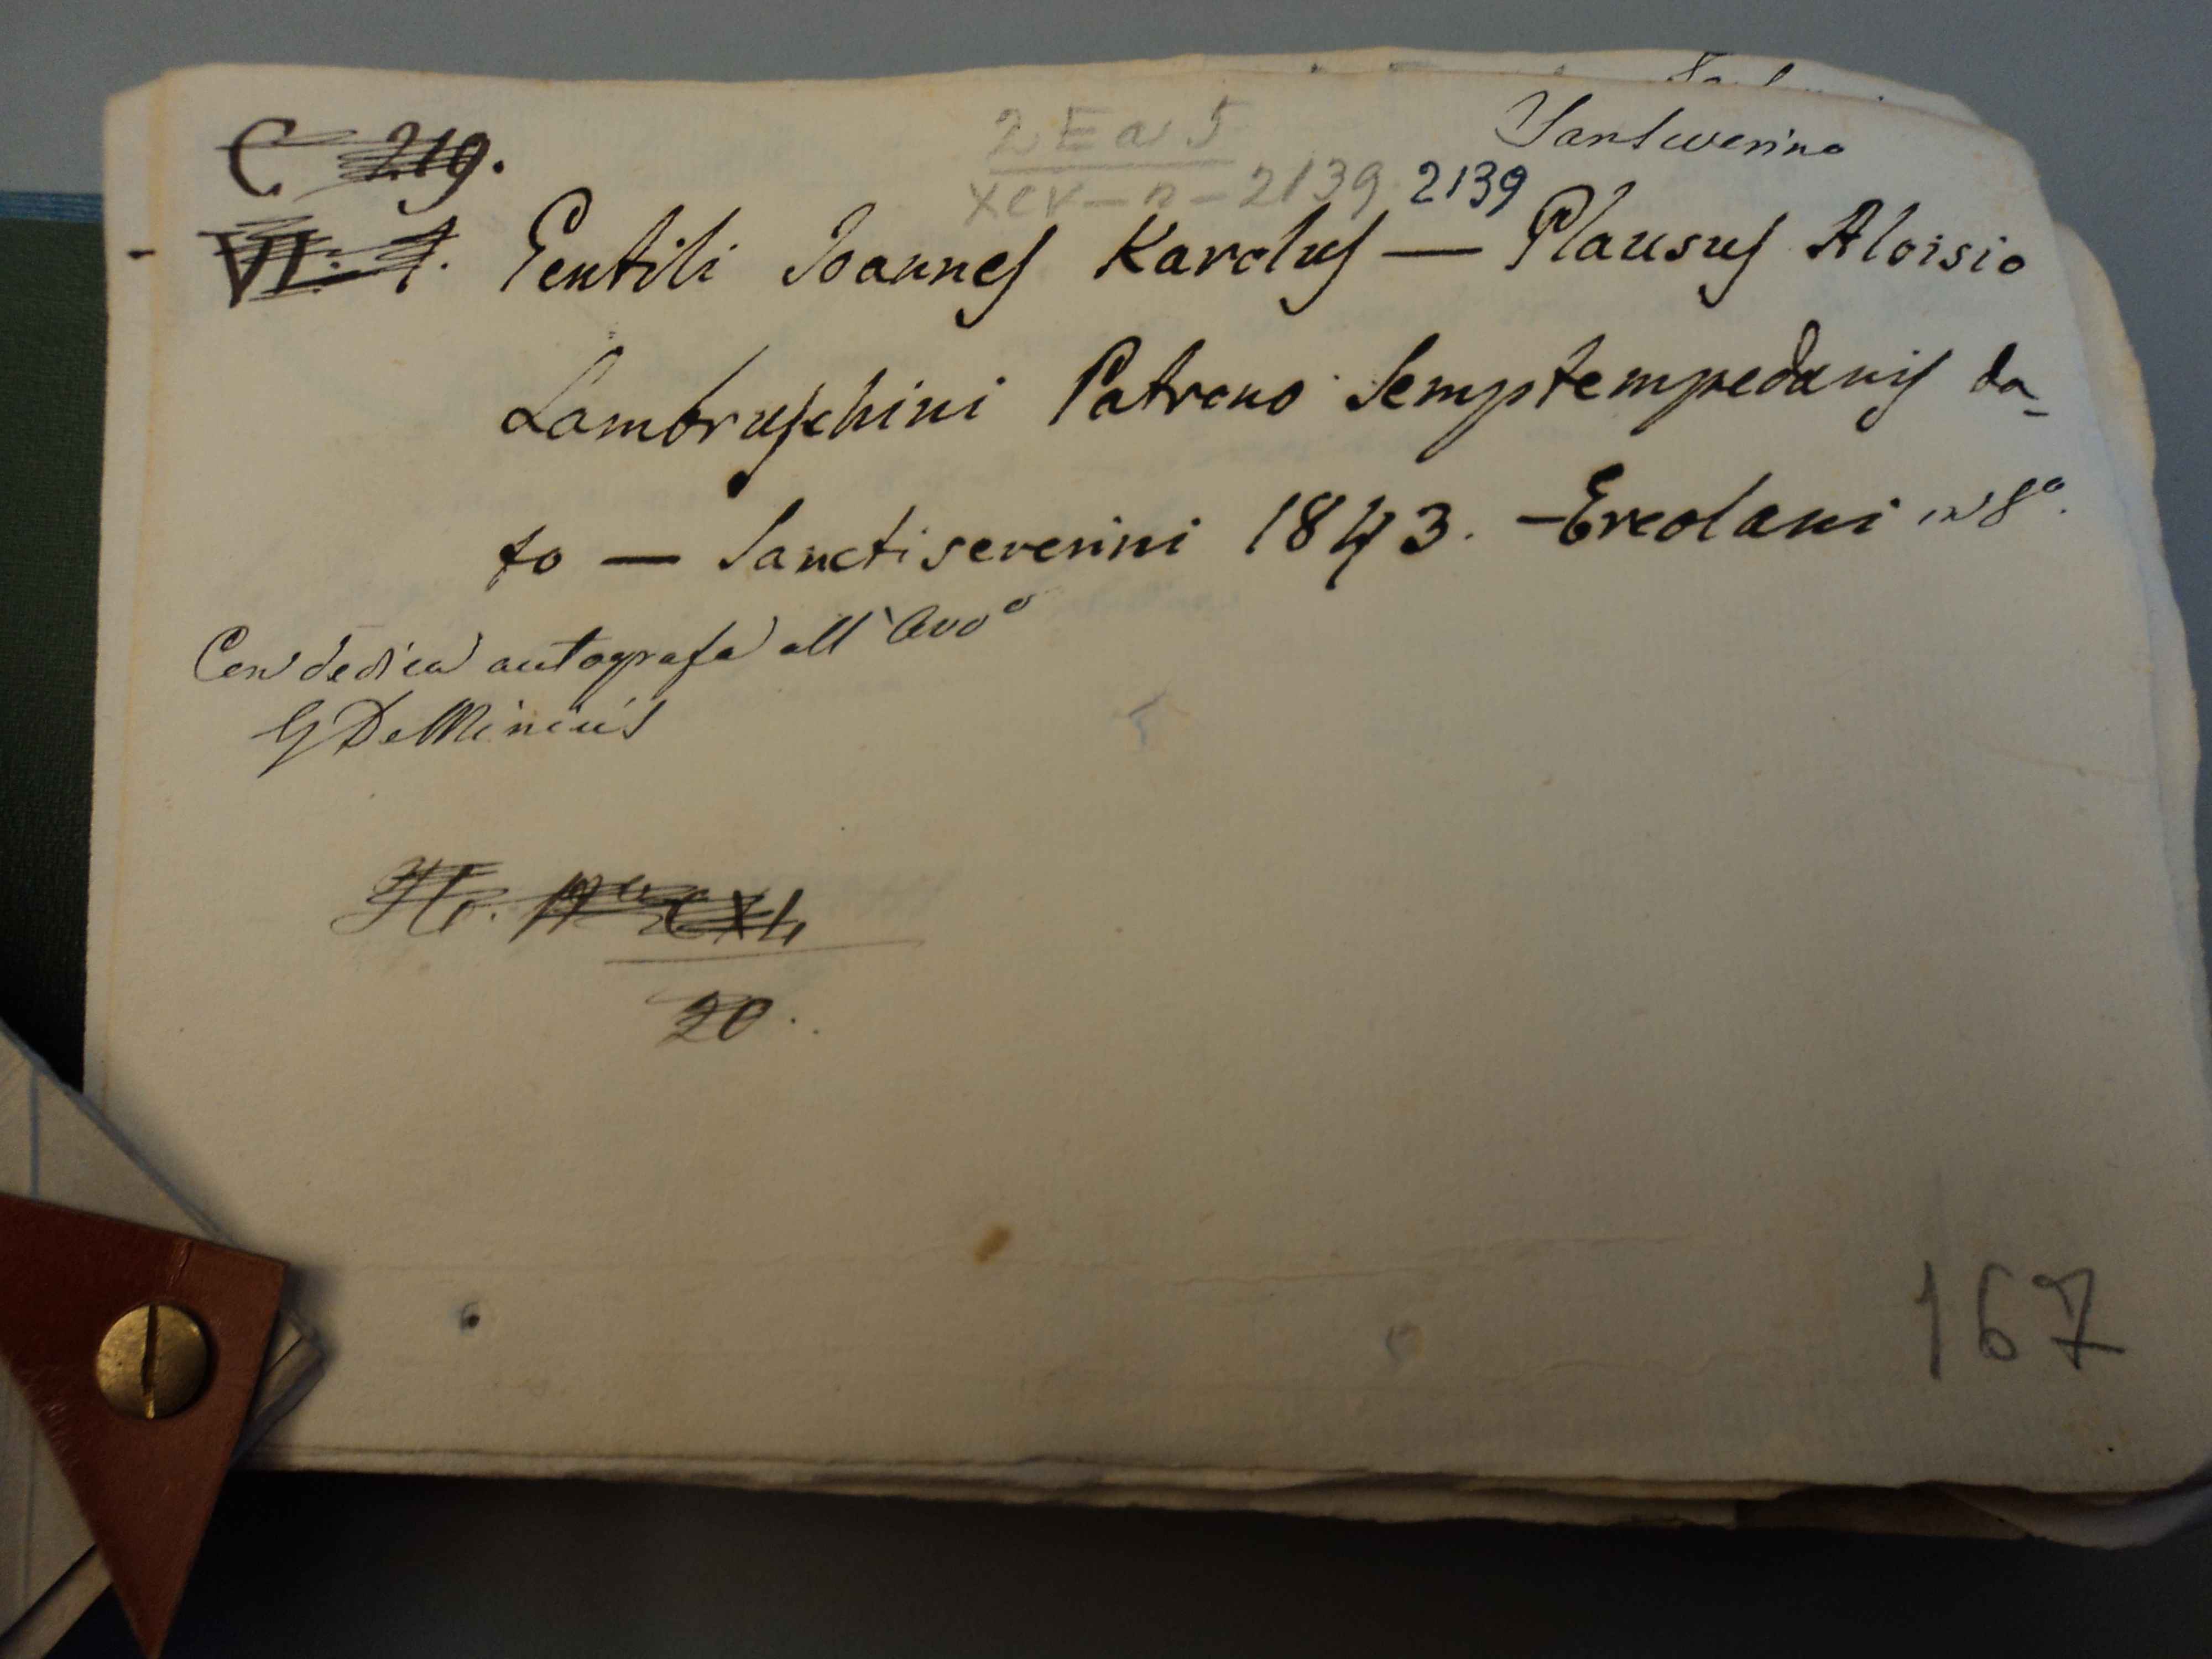 Sanseverino
C 219.
2 E a 5
XCV - n - 2139 2139
VI. 1. Gentili Joannes Karolus — Plausus Aloisio
Lambruschini Patrono Semptempedanis da-
to — Sanctiseverini 1843. — Ercolani in 8º.
Con dedica autografa all'Avvº
G DeMinicis
20.
167